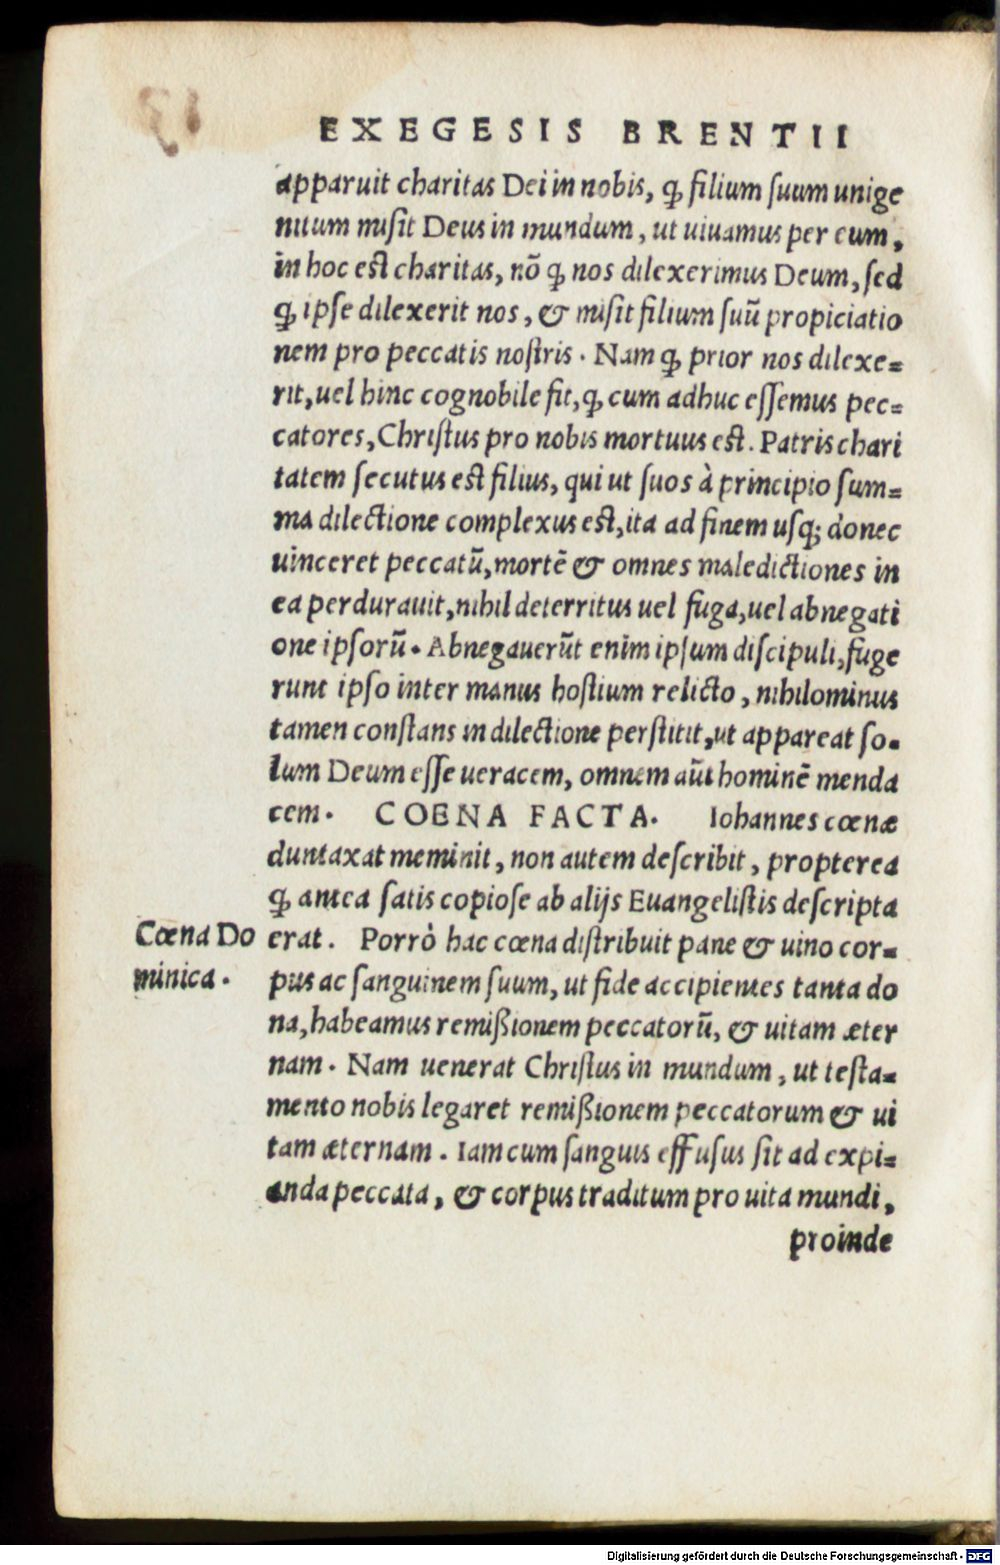 EXEGESIS BRENTII
apparuit charitas Dei in nobis, ꝙ filium ſuum unige
nitum miſit Deus in mundum, ut uiuamus per eum,
in hoc eſt charitas, nõ ꝙ nos dilexerimus Deum, ſed
ꝙ ipſe dilexerit nos, & miſit filium ſuũ propiciatio
nem pro peccatis noſtris. Nam ꝙ prior nos dilexe=
rit, uel hinc cognobile fit, ꝙ cum adhuc eſſemus pec=
catores, Chriſtus pro nobis mortuus eſt. Patris chari
tatem ſecutus eſt filius, qui ut ſuos à principio ſum=
ma dilectione complexus eſt, ita ad finem uſq; donec
uinceret peccatũ, mortẽ & omnes maledictiones in
ea perdurauit, nihil deterritus uel fuga, uel abnegati
one ipſorũ. Abnegauerũt enim ipſum diſcipuli, fuge
runt ipſo inter manus hoſtium relicto, nihilominus
tamen conſtans in dilectione perſtitit, ut appareat ſo=
lum Deum eſſe ueracem, omnem aũt hominẽ menda
cem. COENA FACTA. Iohannes cœnæ
duntaxat meminit, non autem deſcribit, propterea
ꝙ antea ſatis copioſe ab alijs Euangeliſtis deſcripta
Cœna Do
minica.
erat. Porrò hac cœna diſtribuit pane & uino cor=
pus ac ſanguinem ſuum, ut fide accipientes tanta do
na, habeamus remiſſionem peccatorũ, & uitam æter
nam. Nam uenerat Chriſtus in mundum, ut teſta=
mento nobis legaret remiſſionem peccatorum & ui
tam æternam. Iam cum ſanguis effuſus ſit ad expi=
anda peccata, & corpus traditum pro uita mundi,
proinde
Digitalisierung gefördert durch die Deutsche Forschungsgemeinschaft - DFG